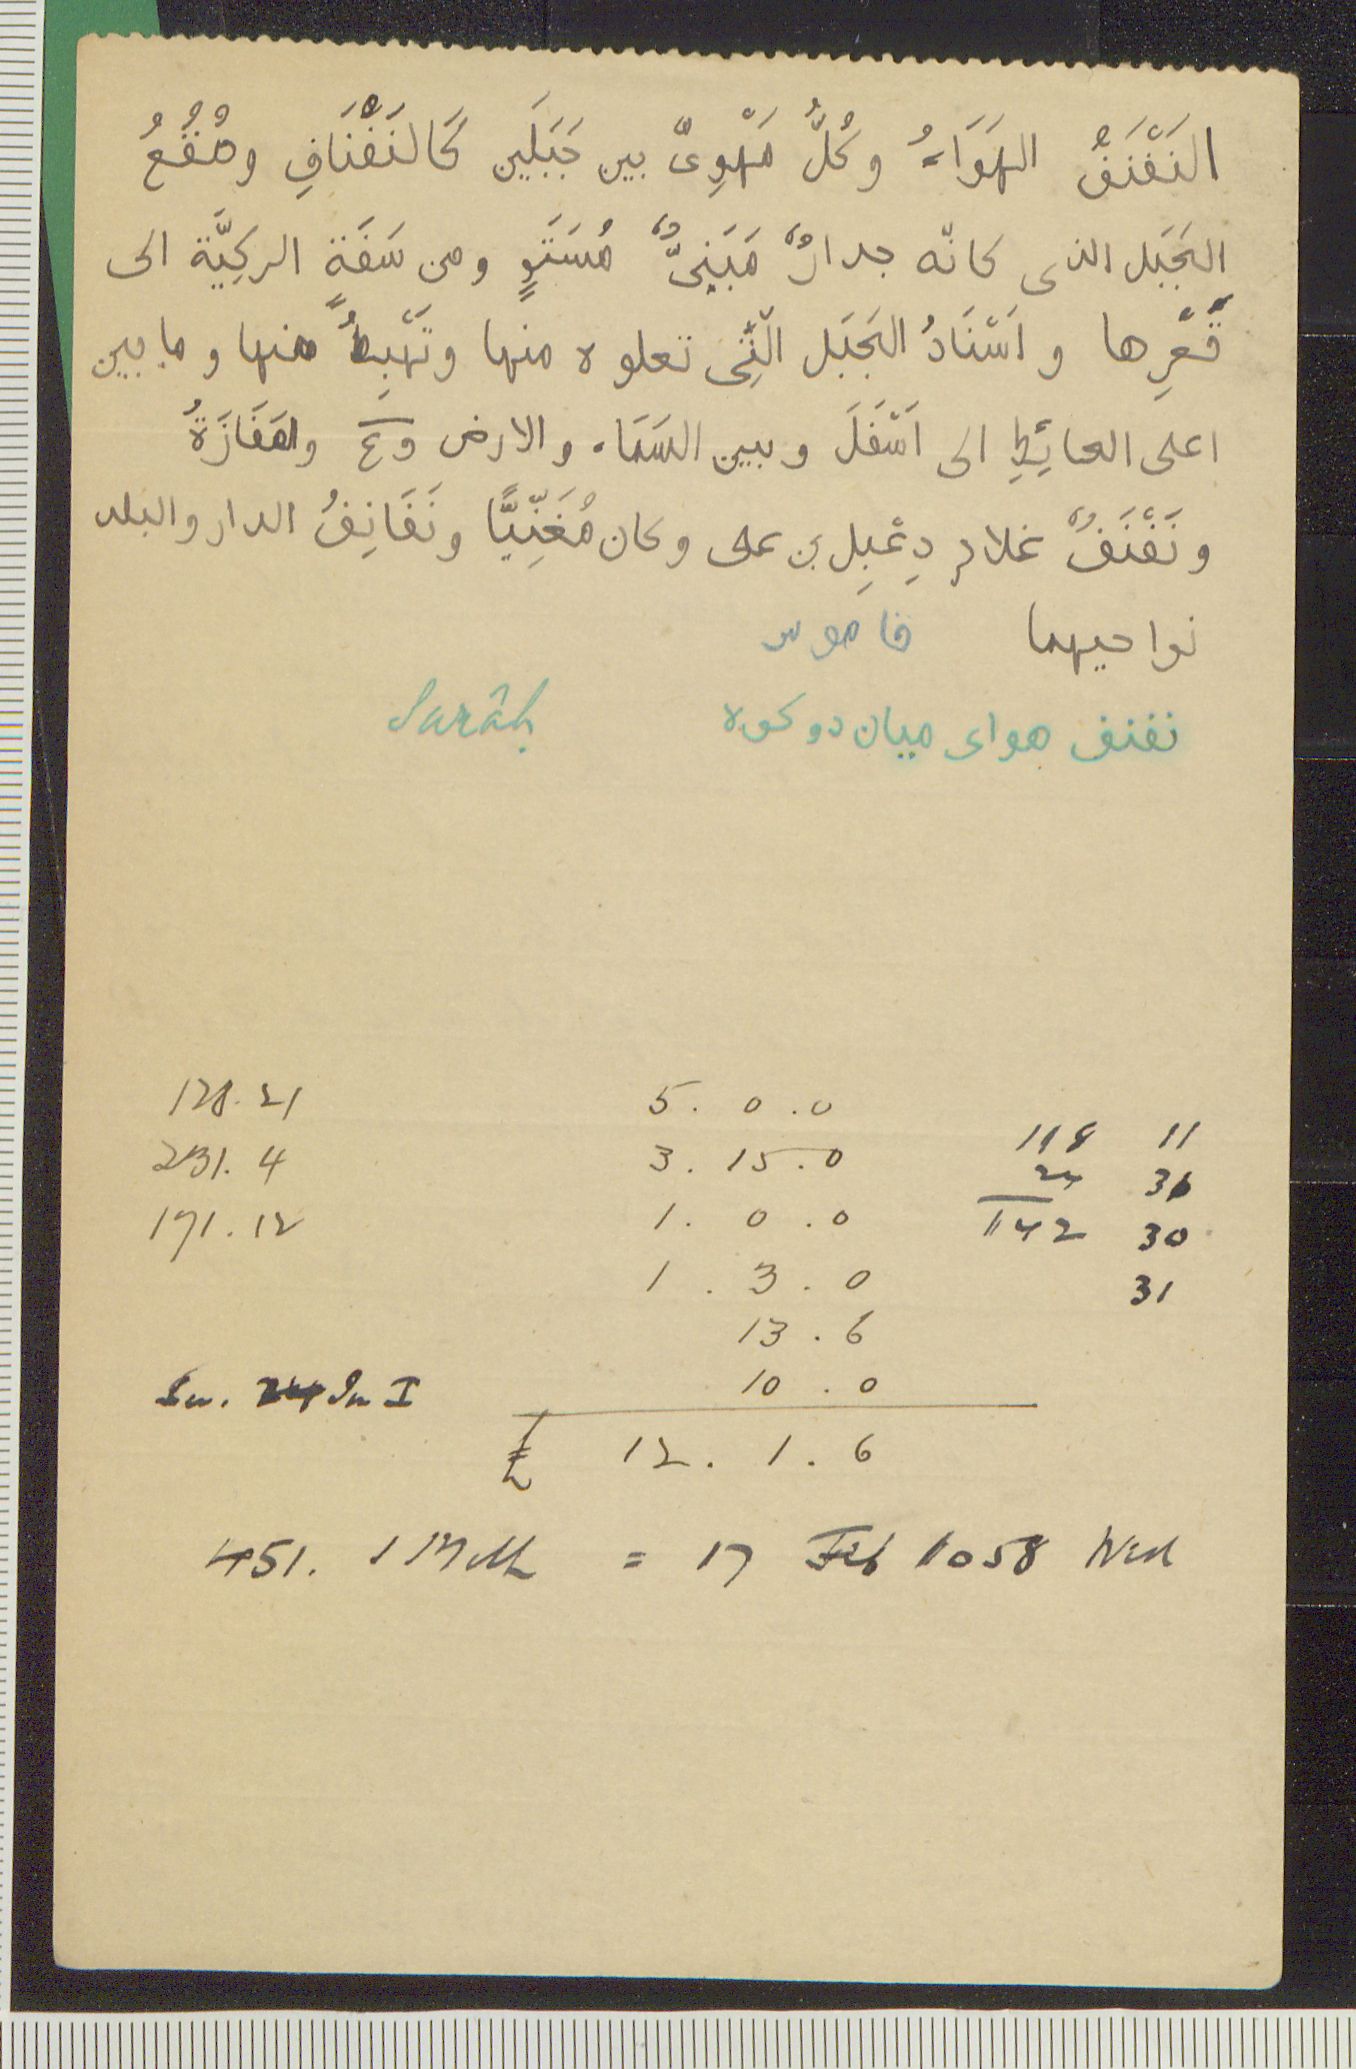 النَفْنَفُ الهَوَاءُ وكُلُّ مَهْوِىً بين جَبَلَين كَالنَفْنَافِ وصُقْعُ
الجَبَل الذى كانّه جدارٌ مَبَنِىٌّ مُسَتَوٍ ومن شَفَةِ الركِيَّة الى
قَعْرِها واَسْنَادُ الجَبَل الّتِى تعلوه منها وتَهْبِطُ منها وما بين
اعلى الحائِطِ الى اَسْفَلَ وبين السَمَاء والارض وع والمَفَازَةُ
ونَفْنَفٌ غلام دِعْبِل بن على وكان مُغَنِّيًّا ونَفَانِفُ الدار والبلد
نواحيهما قاموس
نفنف هواى ميان دو كوه Surâh
128.21 5.0.0
118 11
231.4 3.15.0
24 31
171.12 1.0.0
1142 30
1.3.0 31
13.6
10.0
£ 12.1.6
451. 1 Moh = 17 Feb 1058 Wed